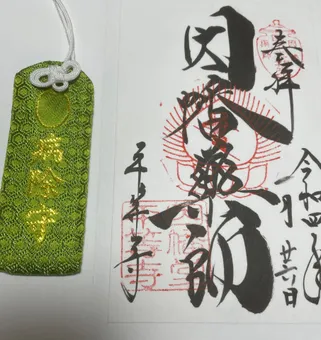 除守
奉拝
因幡薬師
平等寺
令和四年
月廿日